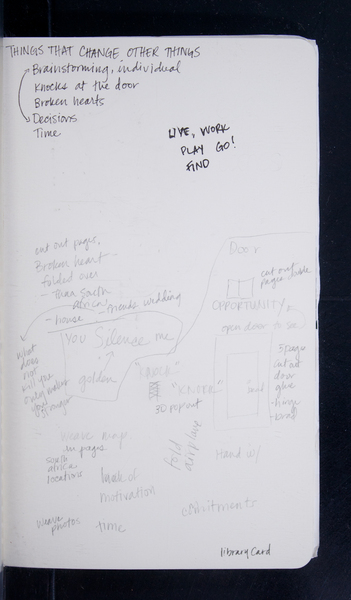 THINGS THAT CHANGE OTHER THINGS
Brainstorming, individual
Knocks at the door
Broken hearts
Decisions
Time
LIVE, WORK
PLAY GO!
FIND
cut out pages,
Broken heart -
folded over
- Than South
Africa
- friends wedding
- house
Door
cut out
pages
OPPORTUNITY
open door to see
You Silence me
golden
"KNOCK"
"KNOCK"
3D popout
5 pages
cut out
door
glue
hinge
what
does
not
kill you
only makes
you
stronger
Weave map
in pages
South
africa
locations
lack of
motivation
fold
airplane
Hand w/
weave
photos
time
library card